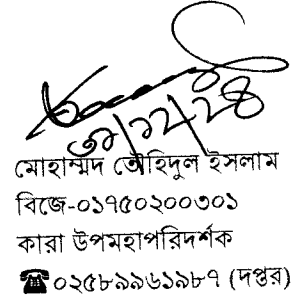 ৩১/১২/২৪
মোহাম্মদ তৌহিদুল ইসলাম
বিজে-০১৭৫০২০০৩০১
কারা উপমহাপরিদর্শক
☎০২৫৮৯৯৬১৯৮৭ (দপ্তর)